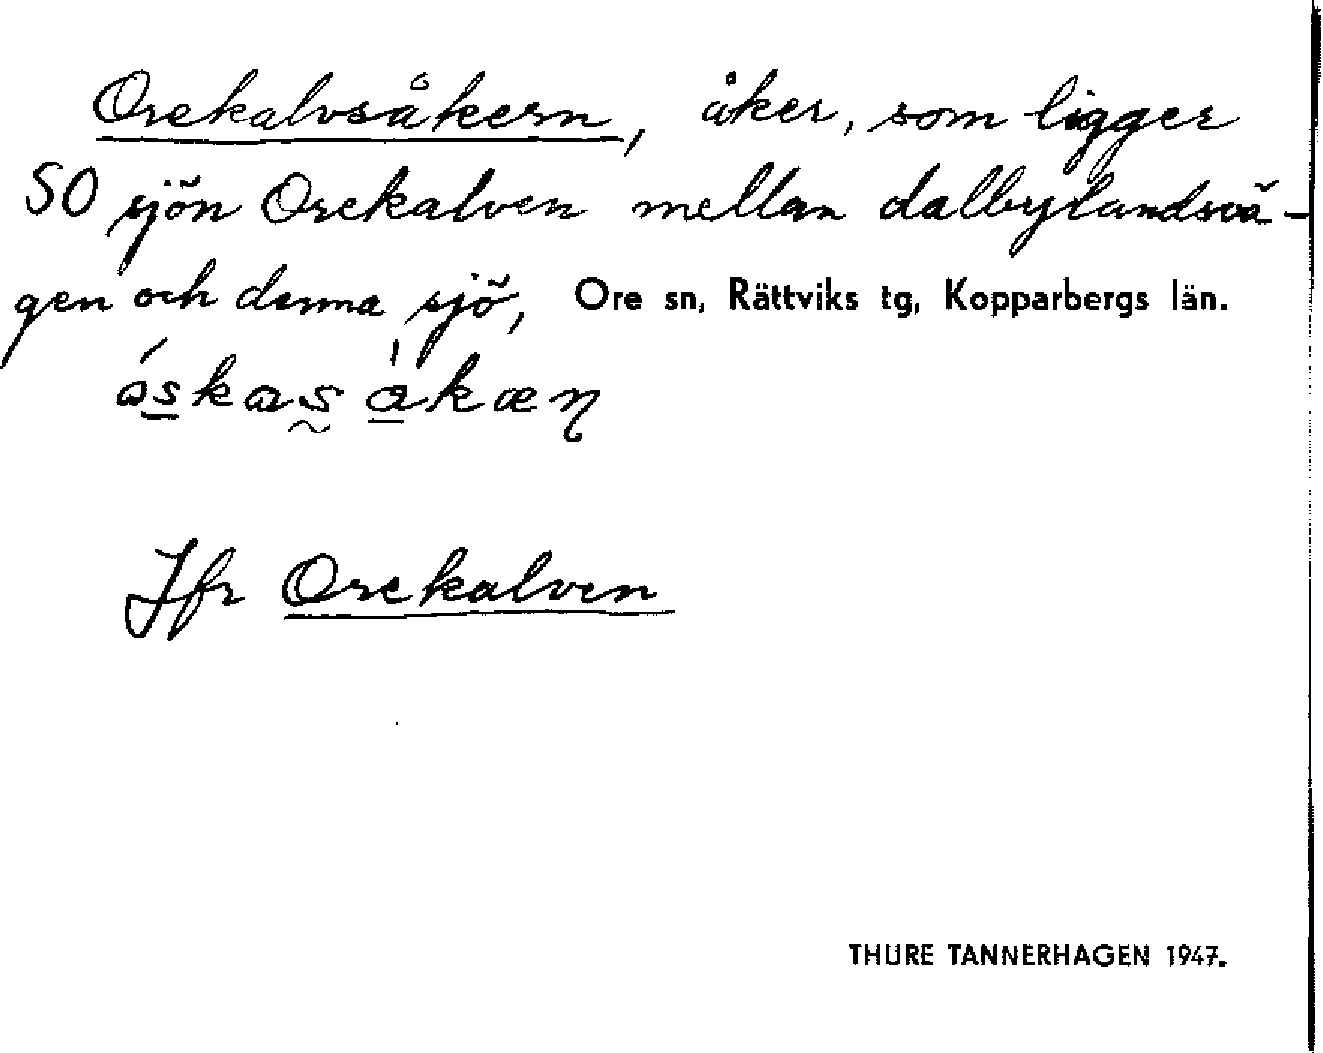 Orekalvsåkern, åker, som ligger
SO sjön Orekalven mellan dalbylandsvä-
gen och denna sjö, Ore sn, Rättviks tg, Kopparbergs län.
Jfr Orekalven
THURE TANNERHAGEN 1947.